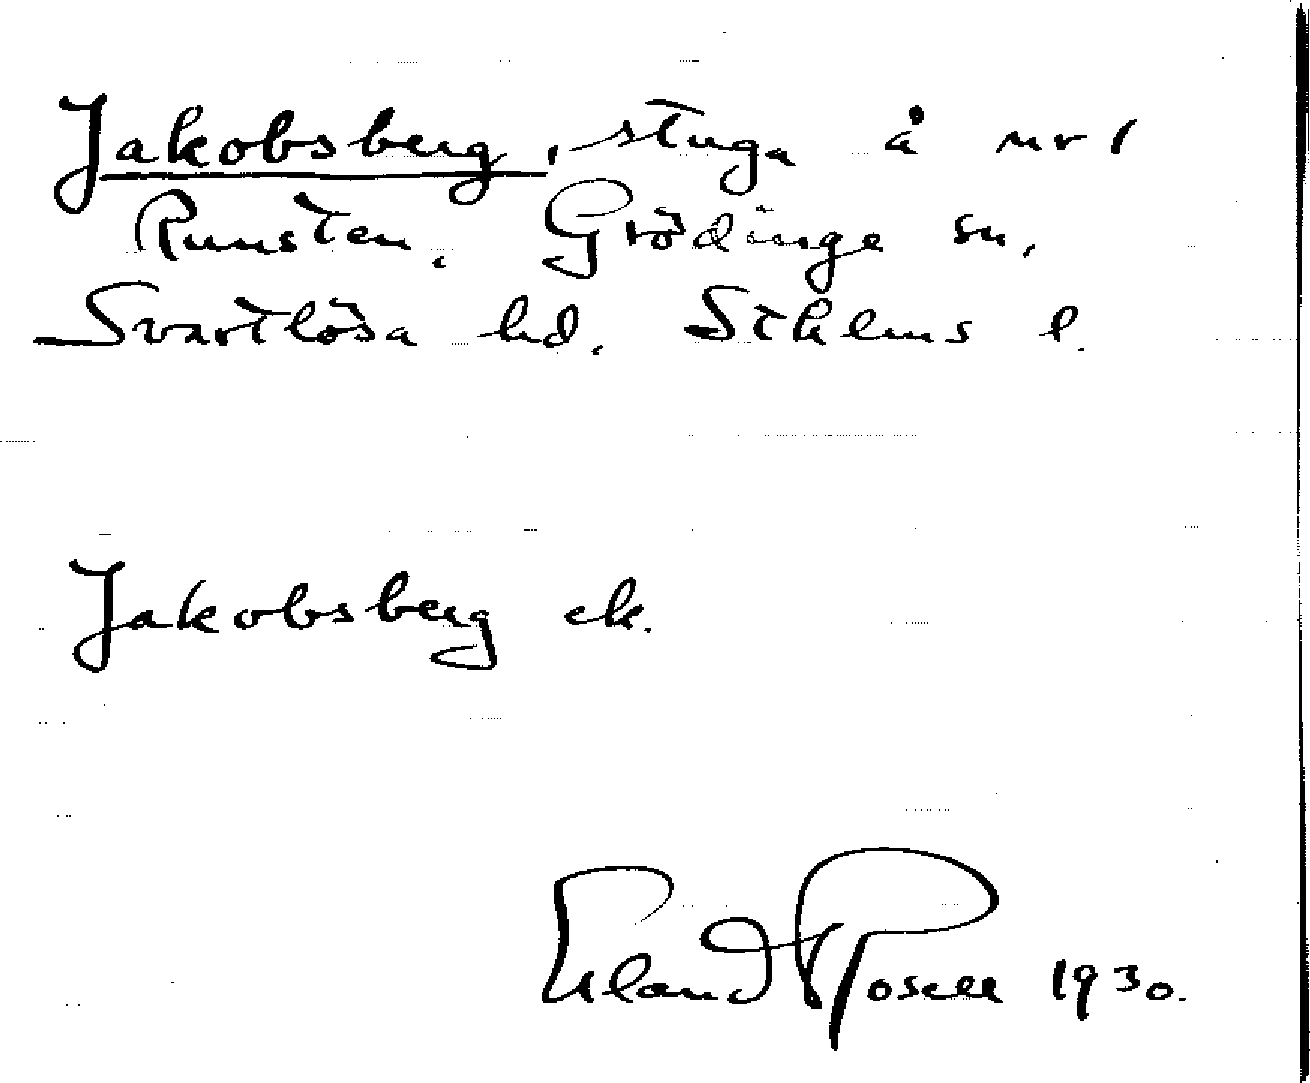 Jakobsberg, stuga å nr 1
Runsten, Grödinge sn,
Svartlösa hd. Sthlms l.
Jakobsberg ek.
Erland Rosell 1930.